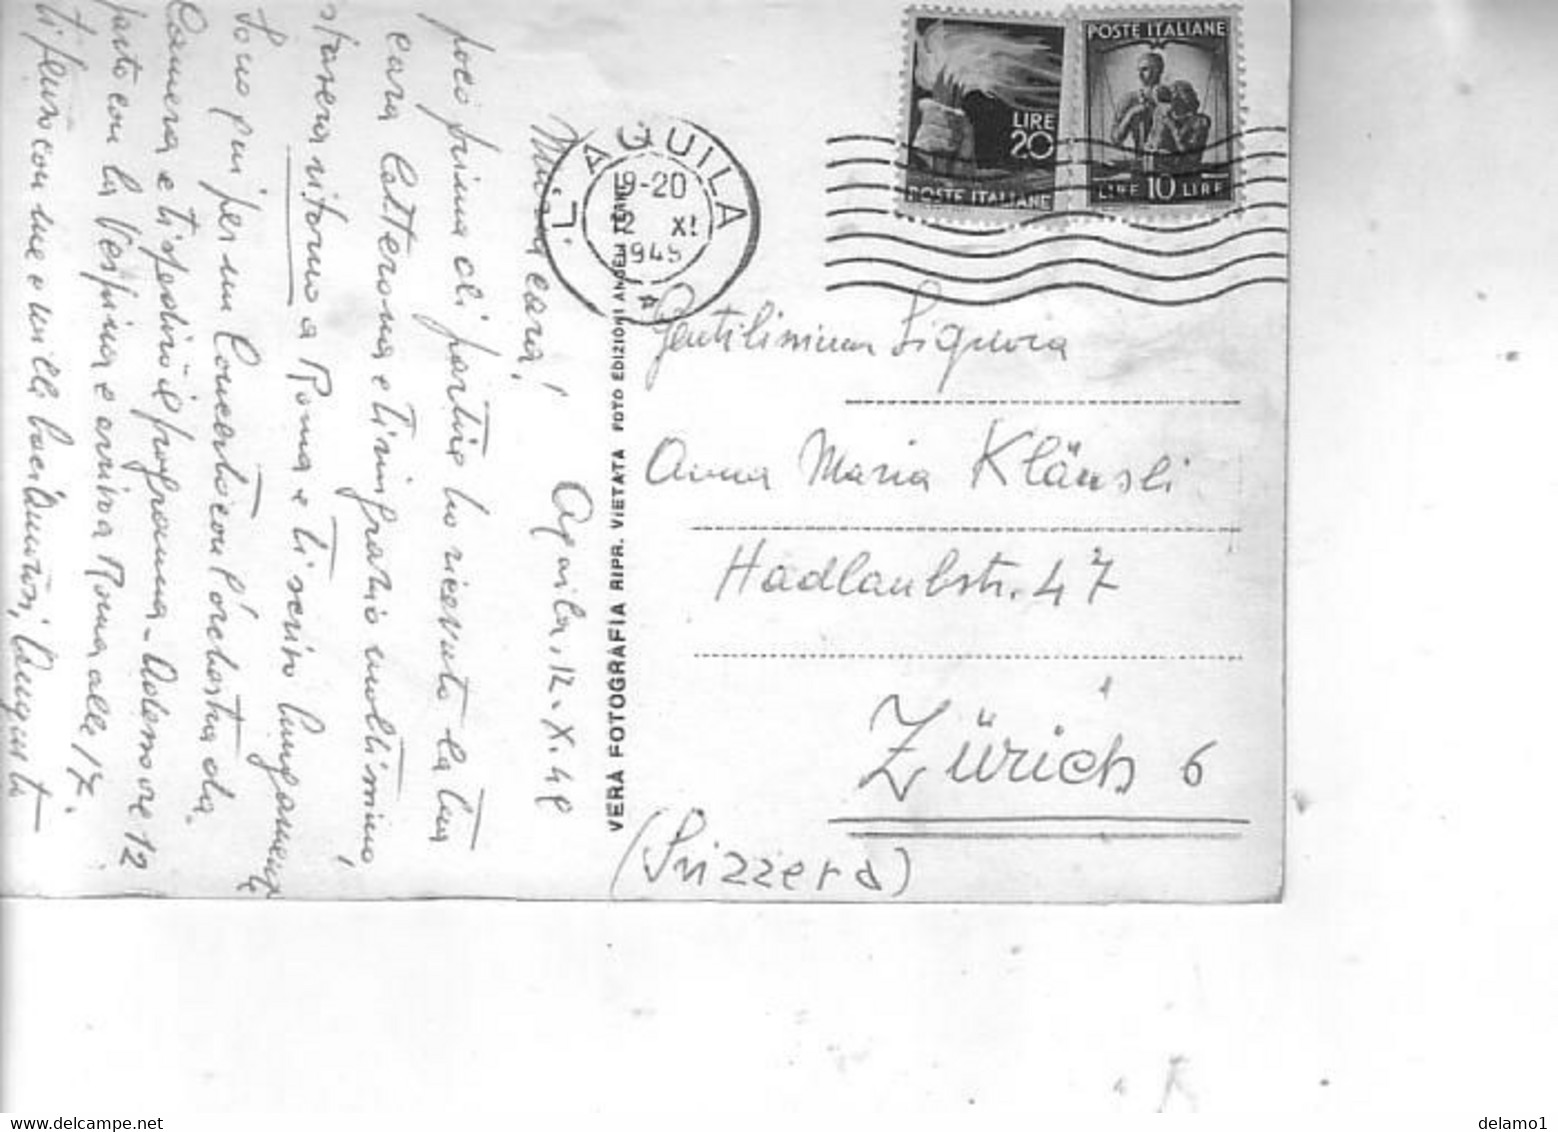 Mia cara!
Aquila, 12.X.48
poco prima di partire ho ricevuto la tua
cara letterona e ti ringrazio moltissimo,
stasera ritorno a Roma e ti scrivo lungamente
Sono qui per un Concerto con l'orchestra da
Camera e ti spedirò il programma.
parto con la Vespina e arrivo a Roma alle 17.
ti penso con me e mille
VERA FOTOGRAFIA RIPR. VIETATA FOTO EDIZIONI
L'AQUILA
19-20
12 XI
194
LIRE
20
POSTE ITALIANE
POSTE ITALIANE
LIRE 10 LIRE
Gentilissima Signora
Anna Maria Kläusli
Hadlaubstr. 47
Zürich 6
(Svizzera)
delamo1